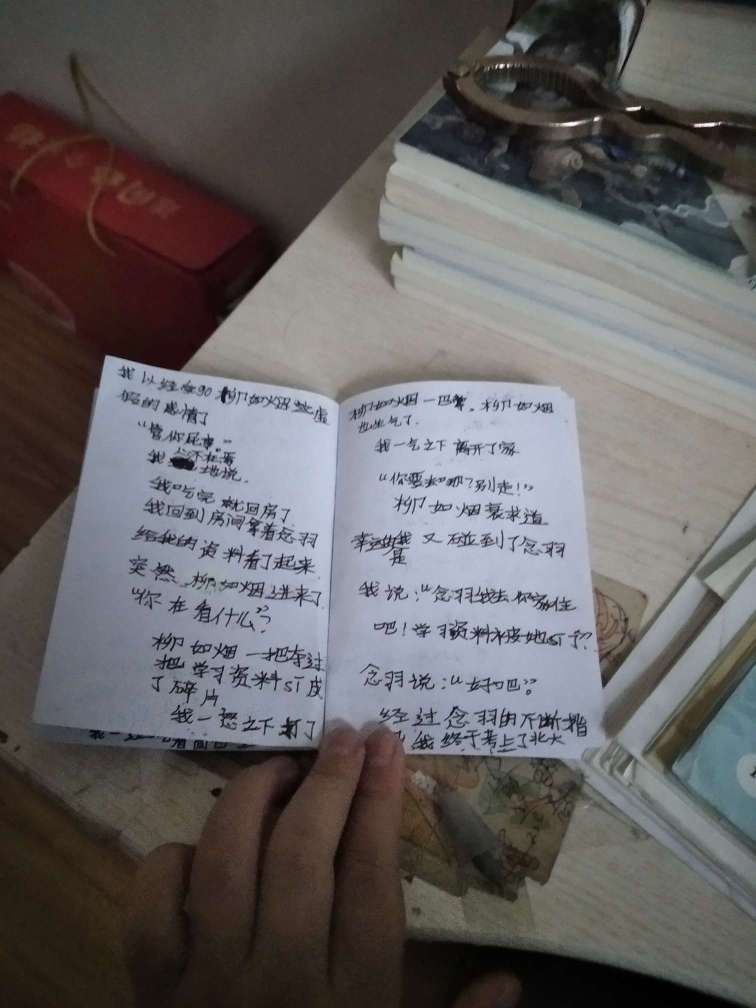 我以经受够柳如烟些虚
够的感情了
"管你屁事"
我不在意
地说.
我吃完就回房了
我回到房间拿着念羽
给我的资料看了起来.
突然 柳如烟进来了.
"你在看什么?"
柳如烟一把夺过
把学习资料ST成
了碎片
我一怒之下打了
柳如烟一巴掌。柳如烟
也生气了.
我一气之下离开了家
"你要去哪?别走!"
柳如烟哀求道
幸运我又碰到了念羽
是
我说:"念羽我去你家住
吧!学习资料被她ST了."
念羽说:"好吧"。
经过念羽的不断指
我终于考上了北大